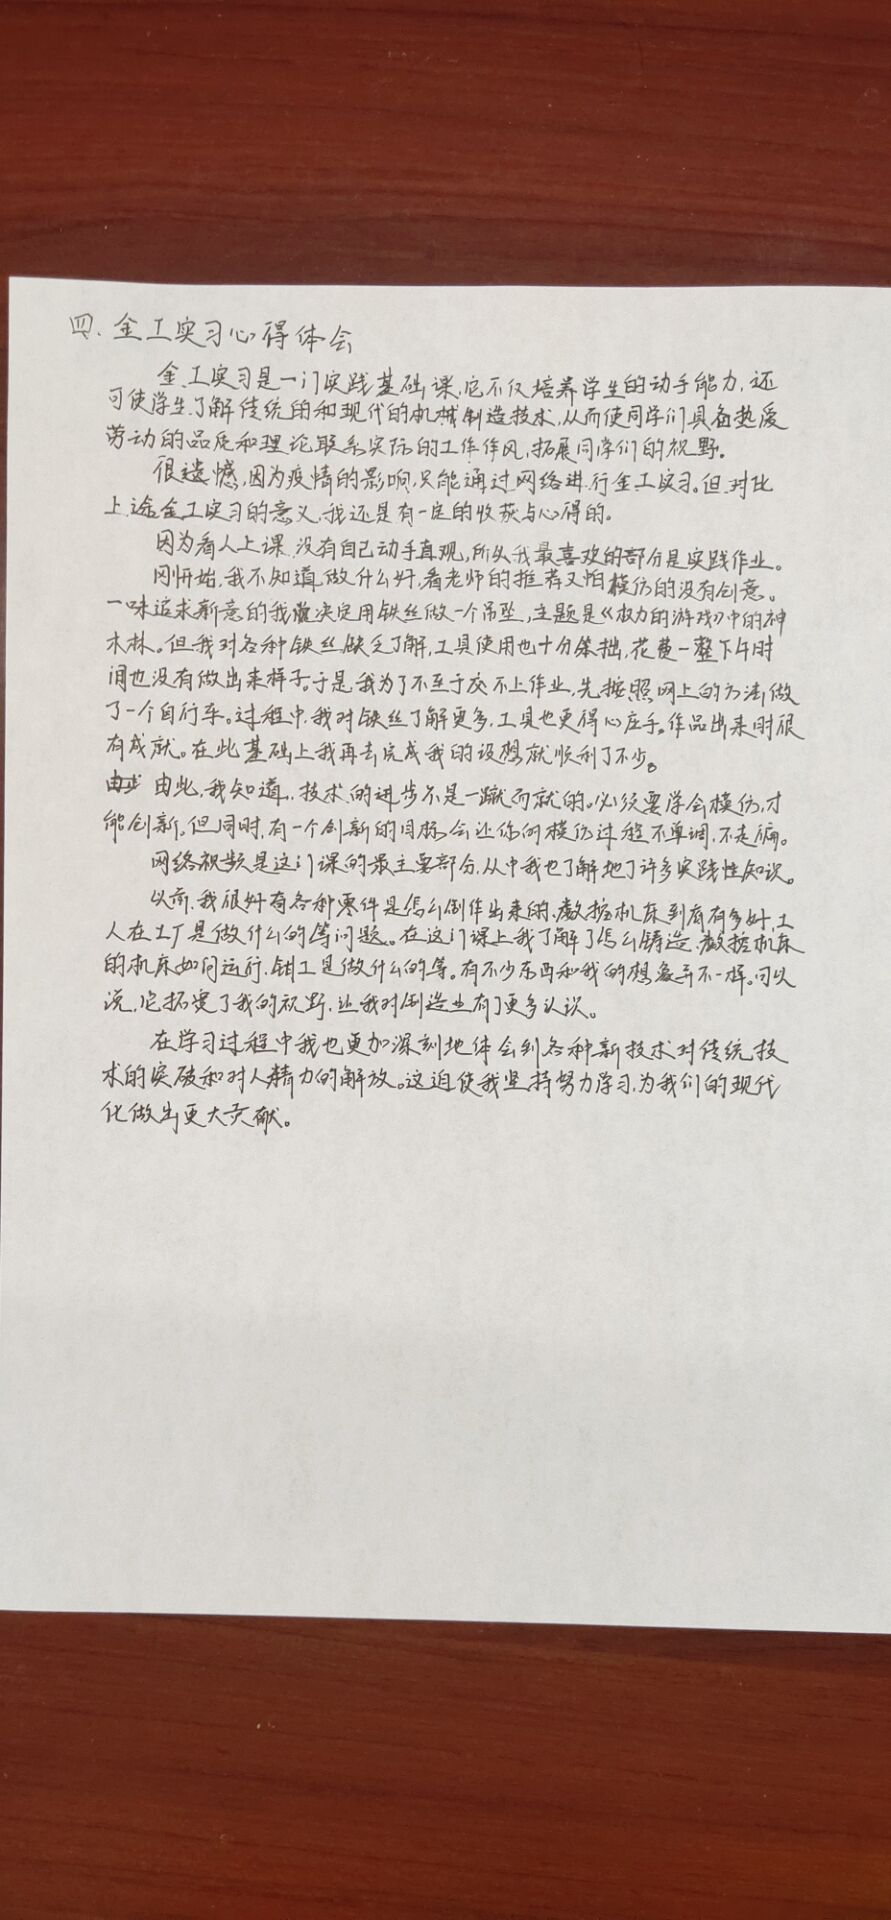 四. 金工实习心得体会
金工实习是一门实践基础课,它不仅培养学生的动手能力,还
可使学生了解传统的和现代的机械制造技术,从而使同学们具备热爱
劳动的品质和理论联系实际的工作作风,拓展同学们的视野.
很遗憾,因为疫情的影响,只能通过网络进行金工实习。但对比
上述金工实习的意义,我还是有一定的收获与心得的。
因为看人上课,没有自己动手直观,所以我最喜欢的部分是实践作业。
刚开始,我不知道做什么好,看老师的推荐又怕模仿的没有创意。
一味追求新意的我就决定用铁丝做一个吊坠,主题是《权力的游戏》中的神
木林。但我对各种铁丝缺乏了解,工具使用也十分笨拙,花费一整下午时
间也没有做出来样子。于是我为了不至于交不上作业,先按照网上的方法做
了一个自行车。过程中,我对铁丝了解更多,工具也更得心应手。作品出来时很
有成就。在此基础上我再去完成我的设想就顺利了不少。
由此,我知道,技术的进步不是一蹴而就的。必须要学会模仿,才
能创新。但同时,有一个创新的目标会让你的模仿过程不单调,不走偏。
网络视频是这门课的最主要部分,从中我也了解地了许多实践性知识。
以前,我很好奇各种零件是怎么制作出来的,数控机床到底有多好,工
人在工厂是做什么的等问题。在这门课上我了解了怎么铸造,数控机床
的机床如何运行,钳工是做什么的等。有不少东西和我的想象并不一样。可以
说,它拓宽了我的视野,让我对制造业有了更多认识。
在学习过程中我也更加深刻地体会到各种新技术对传统技
术的突破和对人精力的解放。这迫使我坚持努力学习,为我们的现代
化做出更大贡献。